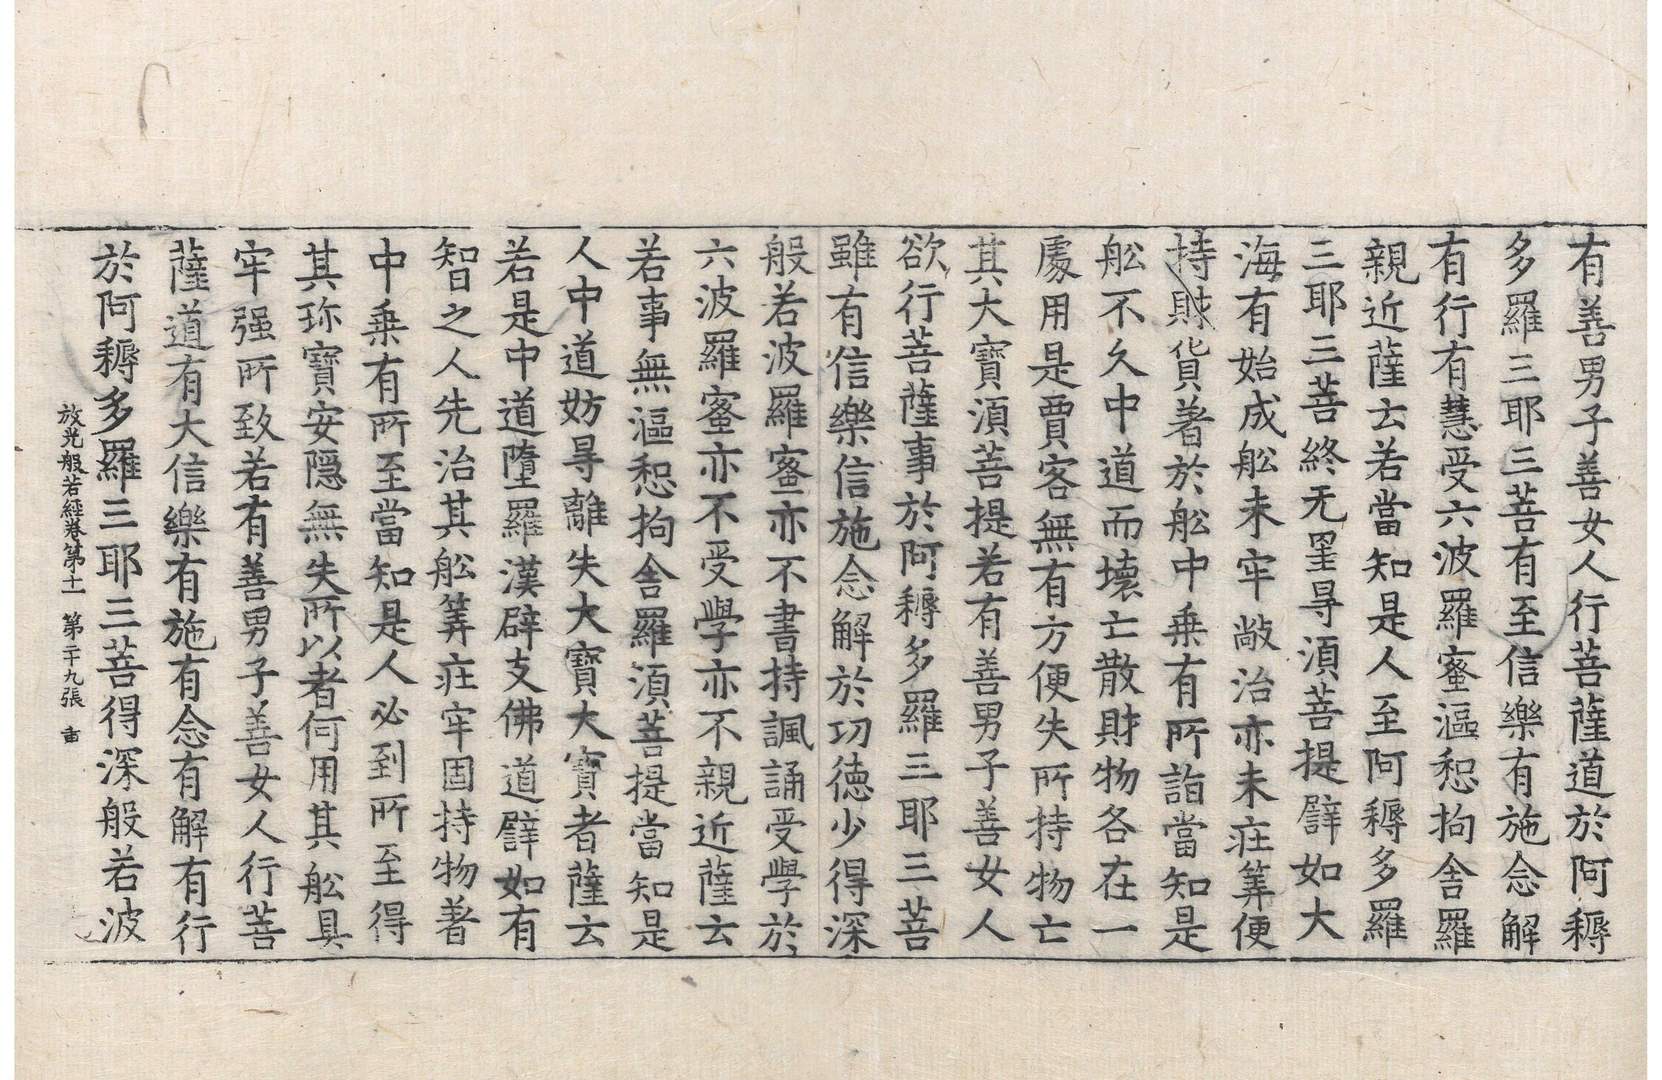 有善男子善女人行菩薩道於阿耨
多羅三耶三菩有至信樂有施念解
有行有慧受六波羅蜜漚惒拘舍羅
親近薩云若當知是人至阿耨多羅
三耶三菩終无罣㝵湏菩提譬如大
海有始成舩未牢敞治亦未疘筭便
持財貨著於舩中乗有所詣當知是
舩不久中道而壊亡散財物各在一
䖏用是賈客無有方便失所持物亡
其大寶湏菩提若有善男子善女人
欲行菩薩事於阿耨多羅三耶三菩
雖有信樂信施念解於功德少得深
般若波羅蜜亦不書持諷誦受學於
六波羅蜜亦不受學亦不親近薩云
若事無漚惒拘舍羅湏菩提當知是
人中道妨㝵離失大寶大寶者薩云
若是中道墮羅漢辟支佛道譬如有
智之人先治其舩筭疘牢固持物著
中乗有所至當知是人必到所至得
其珎寶安隠無失所以者何用其舩具
牢强所致若有善男子善女人行菩
薩道有大信樂有施有念有解有行
於阿耨多羅三耶三菩得深般若波
放光般若經卷第十一 第二十九張 𦈢